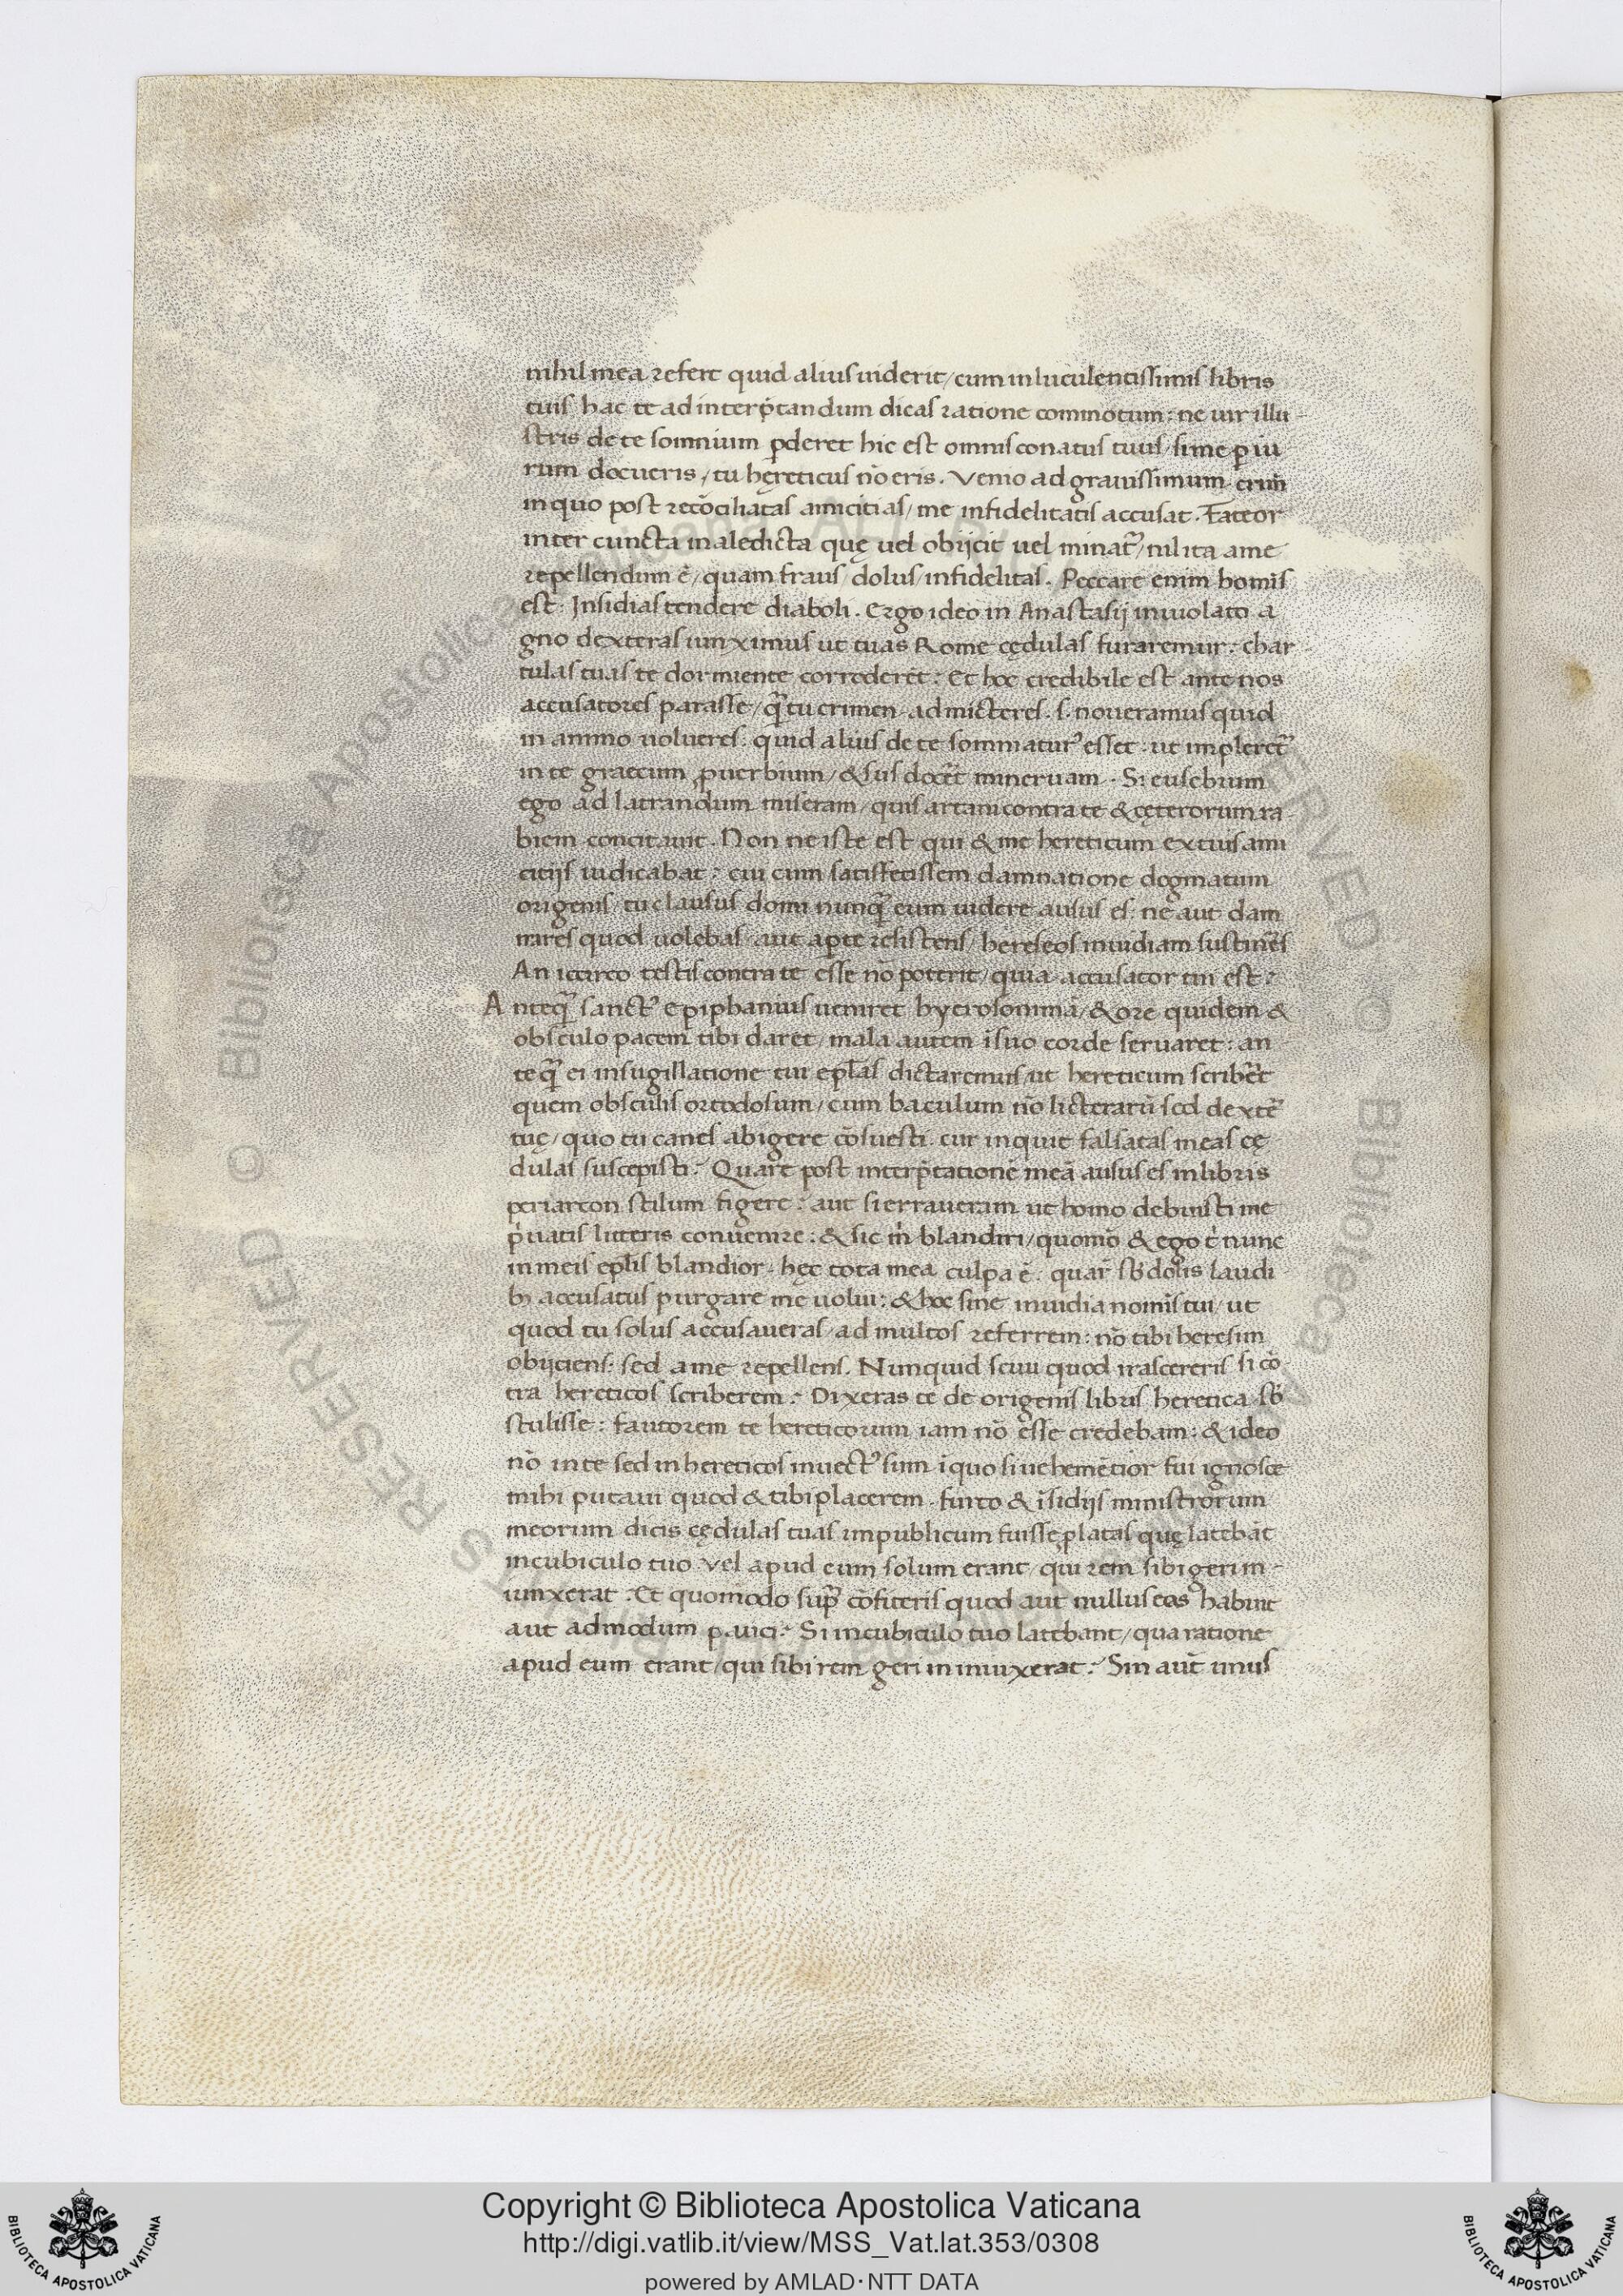 nihil mea refert quid alius uiderit/ cum in luculentissimis libris
tuis hac te ad interp̃tandum dicas ratione commotum: ne uir illu-
stris de te somnium ꝑderet hic est omnis conatus tuus/ si me ꝑiu
rum docueris/ tu hęreticus nõ eris. Venio ad grauissimum crim̃
in quo post recõciliatas amicitias/ me infidelitatis accusat. Fateor
inter cuncta maledicta quę uel obijcit uel minat᷑/ nil ita a me
repellendum ẽ/ quam fraus/ dolus/ infidelitas. Peccare enim homis
est: Insidias tendere diaboli. Ergo ideo in Anastasij inuiolato a
gno dexteras iunximus ut tuas Rome cędulas furaremur. char
tulas tuas te dormiente corroderẽt: Et hoc credibile est ante nos
accusatores parasse/ q̃ tu crimen admicteres. s. noueramus quid
in animo uolueres. quid alius de te somniatur᷒ esset. ut impleret᷑
in te graecum ꝓuerbium/ & sus docẽt mineruam. Si eusebium
ego ad latrandum miseram/ quis artam contra te & cęterorum ra
biem concitauit. Non ne iste est qui & me hereticum ex tuis ami
citijs iudicabat? cui cum satisfecissem damnatione dogmatum
origenis/ tu clausus domi nunq̃ eum uidere ausus es: ne aut dam
nares quod uolebas/ aut aꝑte resistens/ hereseos inuidiam sustinẽs
An iccirco testis contra te esse nõ poterit/ quia accusator tui est?
Anteq̃ sanct᷒ epiphanius ueniret hyerosolimã/ & ore quidem &
obsculo pacem tibi daret/ mala autem ĩ suo corde seruaret: an
teq̃ ei in sugillatione tui ep̃las dictaremus/ ut hereticum scribẽt
quem obsculis ortodosum/ cum baculum nõ licterarũ sed dextẽ
tuę/ quo tu canes abigere cõsuesti. cur inquit falsatas meas cę
dulas suscepisti? Quare post interp̃tationẽ meã ausus es in libris
periarcon stilum figere? aut si erraueram ut homo debuisti me
p̃uatis litteris conuenire: & sic m̃ blandiri/ quomõ & ego t̃ nunc
in meis ep̃lis blandior. hęc tota mea culpa ẽ. quar̃ sb̃dolis laudi
bꝫ accusatus purgare me uolui: & hoc sine inuidia nomĩs tui/ ut
quod tu solus accusaueras/ ad multos referrem: nõ tibi heresim
obijciens: sed a me repellens. Nunquid sciui quod irascereris si cõ
tra hereticos scriberem? Dixeras te de origenis libris heretica sb̃
stulisse: fautorem te hereticorum iam nõ esse credebam: & ideo
nõ in te sed in hereticos inuect᷒ sum. ĩ quo si uehemẽtior fui ignosce
mihi putaui quod & tibi placerem. furto & ĩsidijs ministrorum
meorum dicis cędulas tuas in publicum fuisse ꝓlatas quę latebãt
in cubiculo tuo. vel apud eum solum erant/ qui rem sibi geri in-
iunxerat. Et quomodo sup̃ cõfiteris quod aut nullus eas habuit
aut admodum p.uici? Si in cubiculo tuo latebant/ qua ratione
apud eum erant/ qui sibi rem geri in iniuxerat? Sin aut̃ unus
Copyright © Biblioteca Apostolica Vaticana
http://digi.vatlib.it/view/MSS_Vat.lat.353/0308
powered by AMLAD·NTT DATA